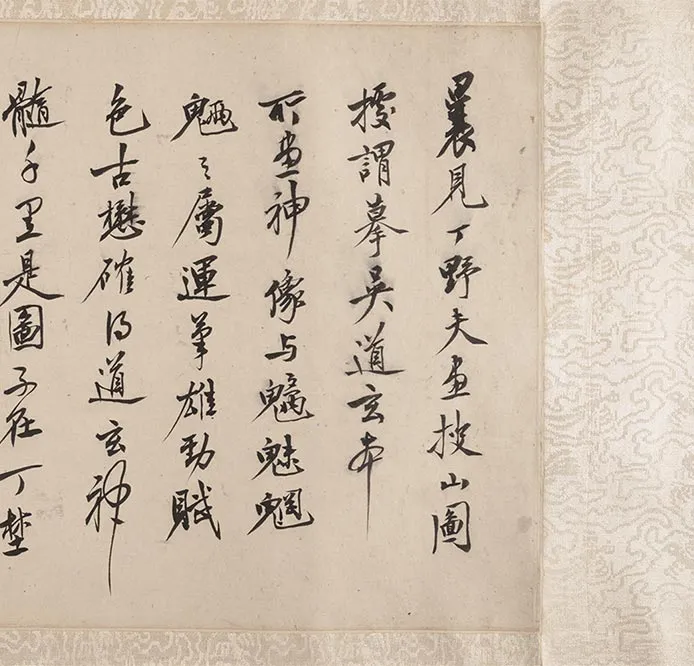 曩見丁野夫畫搜山圖
謂摹吳道玄本
所畫神像与魑魅魍
魎之屬運筆雄勁賦
色古懋確得道玄神
髓千里是圖不在丁埜